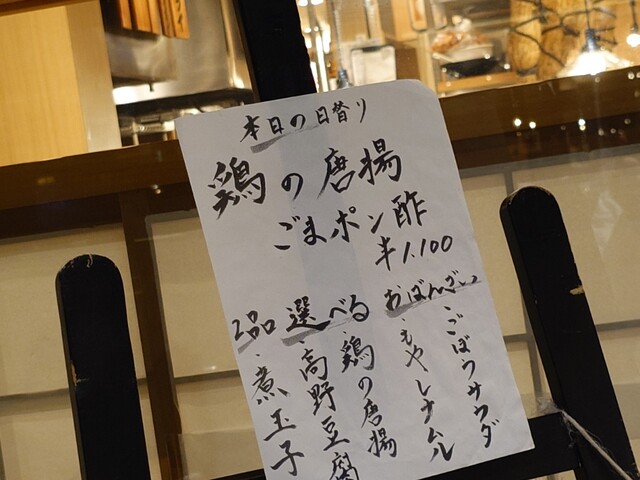 本日の日替り
鶏の唐揚
ごまポン酢
¥1.100
2品 選べる おばんざい
・ごぼうサラダ
・もやしナムル
鶏の唐揚
・高野豆腐
・煮玉子